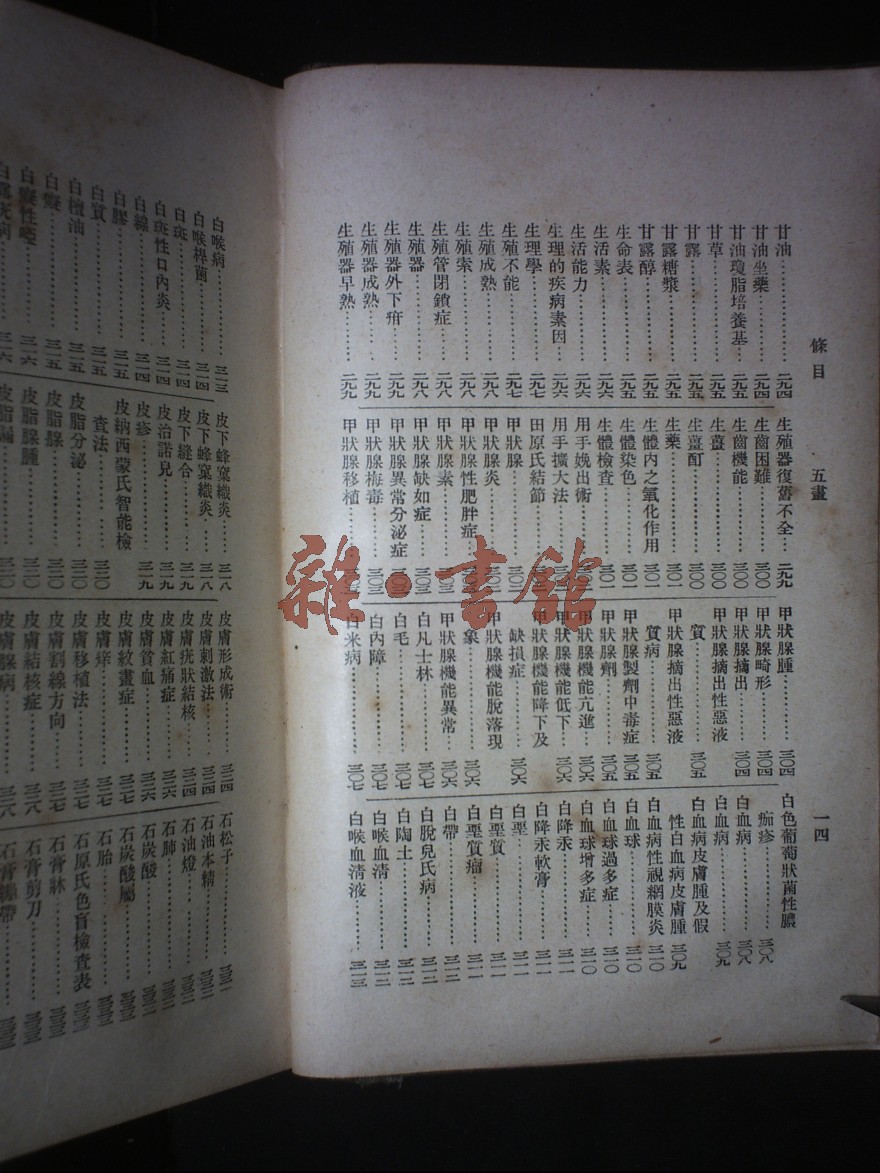 條目　五畫
一四
甘油……二九四
甘油坐藥……二九四
甘油瓊脂培養基……二九五
甘草……二九五
甘露……二九五
甘露糖漿……二九五
甘露醇……二九五
生命表……二九五
生活素……二九六
生活能力……二九六
生理的疾病素因……二九六
生理學……二九七
生殖不能……二九七
生殖成熟……二九八
生殖索……二九八
生殖管閉鎖症……二九八
生殖器……二九八
生殖器外下疳……二九九
生殖器成熟……二九九
生殖器早熟……二九九
生殖器復舊不全……二九九
生齒困難……三〇〇
生齒機能……三〇〇
生薑……三〇〇
生薑酊……三〇〇
生藥……三〇一
生體內之氧化作用……三〇一
生體染色……三〇一
生體檢查……三〇一
用手娩出術
用手擴大法
田原氏結節
甲狀腺
甲狀腺炎
甲狀腺性肥胖症
甲狀腺素
甲狀腺缺如症……三〇三
甲狀腺異常分泌症
甲狀腺梅毒……三〇三
甲狀腺移植
甲狀腺腫……三〇四
甲狀腺畸形……三〇四
甲狀腺摘出……三〇四
甲狀腺摘出性惡液
質……三〇五
甲狀腺摘出性惡液
質病……三〇五
甲狀腺製劑中毒症……三〇五
甲狀腺劑……三〇五
甲狀腺機能亢進……三〇六
甲狀腺機能低下……三〇六
甲狀腺機能降下及
缺損症……三〇六
甲狀腺機能脫落現
象……三〇六
甲狀腺機能異常……三〇六
白凡士林……三〇七
白毛……三〇七
白內障……三〇七
白米病……三〇七
白色葡萄狀菌性膿
痂疹……三〇八
白血病……三〇八
白血病……三〇九
白血病皮膚腫及假
性白血病皮膚腫……三〇九
白血病性視網膜炎……三一〇
白血球……三一〇
白血球過多症……三一〇
白血球增多症……三一〇
白降汞……三一一
白降汞軟膏……三一一
白堊……三一一
白堊質……三一一
白堊質瘤……三一一
白帶……三一二
白脫兒氏病……三一二
白陶土……三一三
白喉血清……三一三
白喉血清液……三一三
白喉病……三一三
白喉桿菌……三一四
白斑……三一四
白斑性口內炎……三一四
白線……三一四
白膠……三一五
白質……三一五
白檀油……三一五
白癡……三一五
白癡性啞……三一六
皮下蜂窠織炎……三一八
皮下蜂窠織炎……三一八
皮下縫合……三一九
皮治諾兒……三一九
皮疹……三一九
皮納西蒙氏智能檢
查法……三二〇
皮脂分泌……三二〇
皮脂腺……三二〇
皮脂腺腫……三二〇
皮脂漏……三二〇
皮膚形成術……三二四
皮膚刺激法……三二四
皮膚疣狀結核……三二四
皮膚紅痛症……三二六
皮膚貧血……三二六
皮膚紋畫症……三二七
皮膚痒……三二七
皮膚移植法……三二七
皮膚割線方向……三二七
皮膚結核症……三二八
皮膚腺病……三二八
石松子
石油本精
石油燈
石肺
石炭酸
石炭酸屬
石胎
石原氏色盲檢查表
石膏牀
石膏剪刀
石膏繃帶
雜·書館